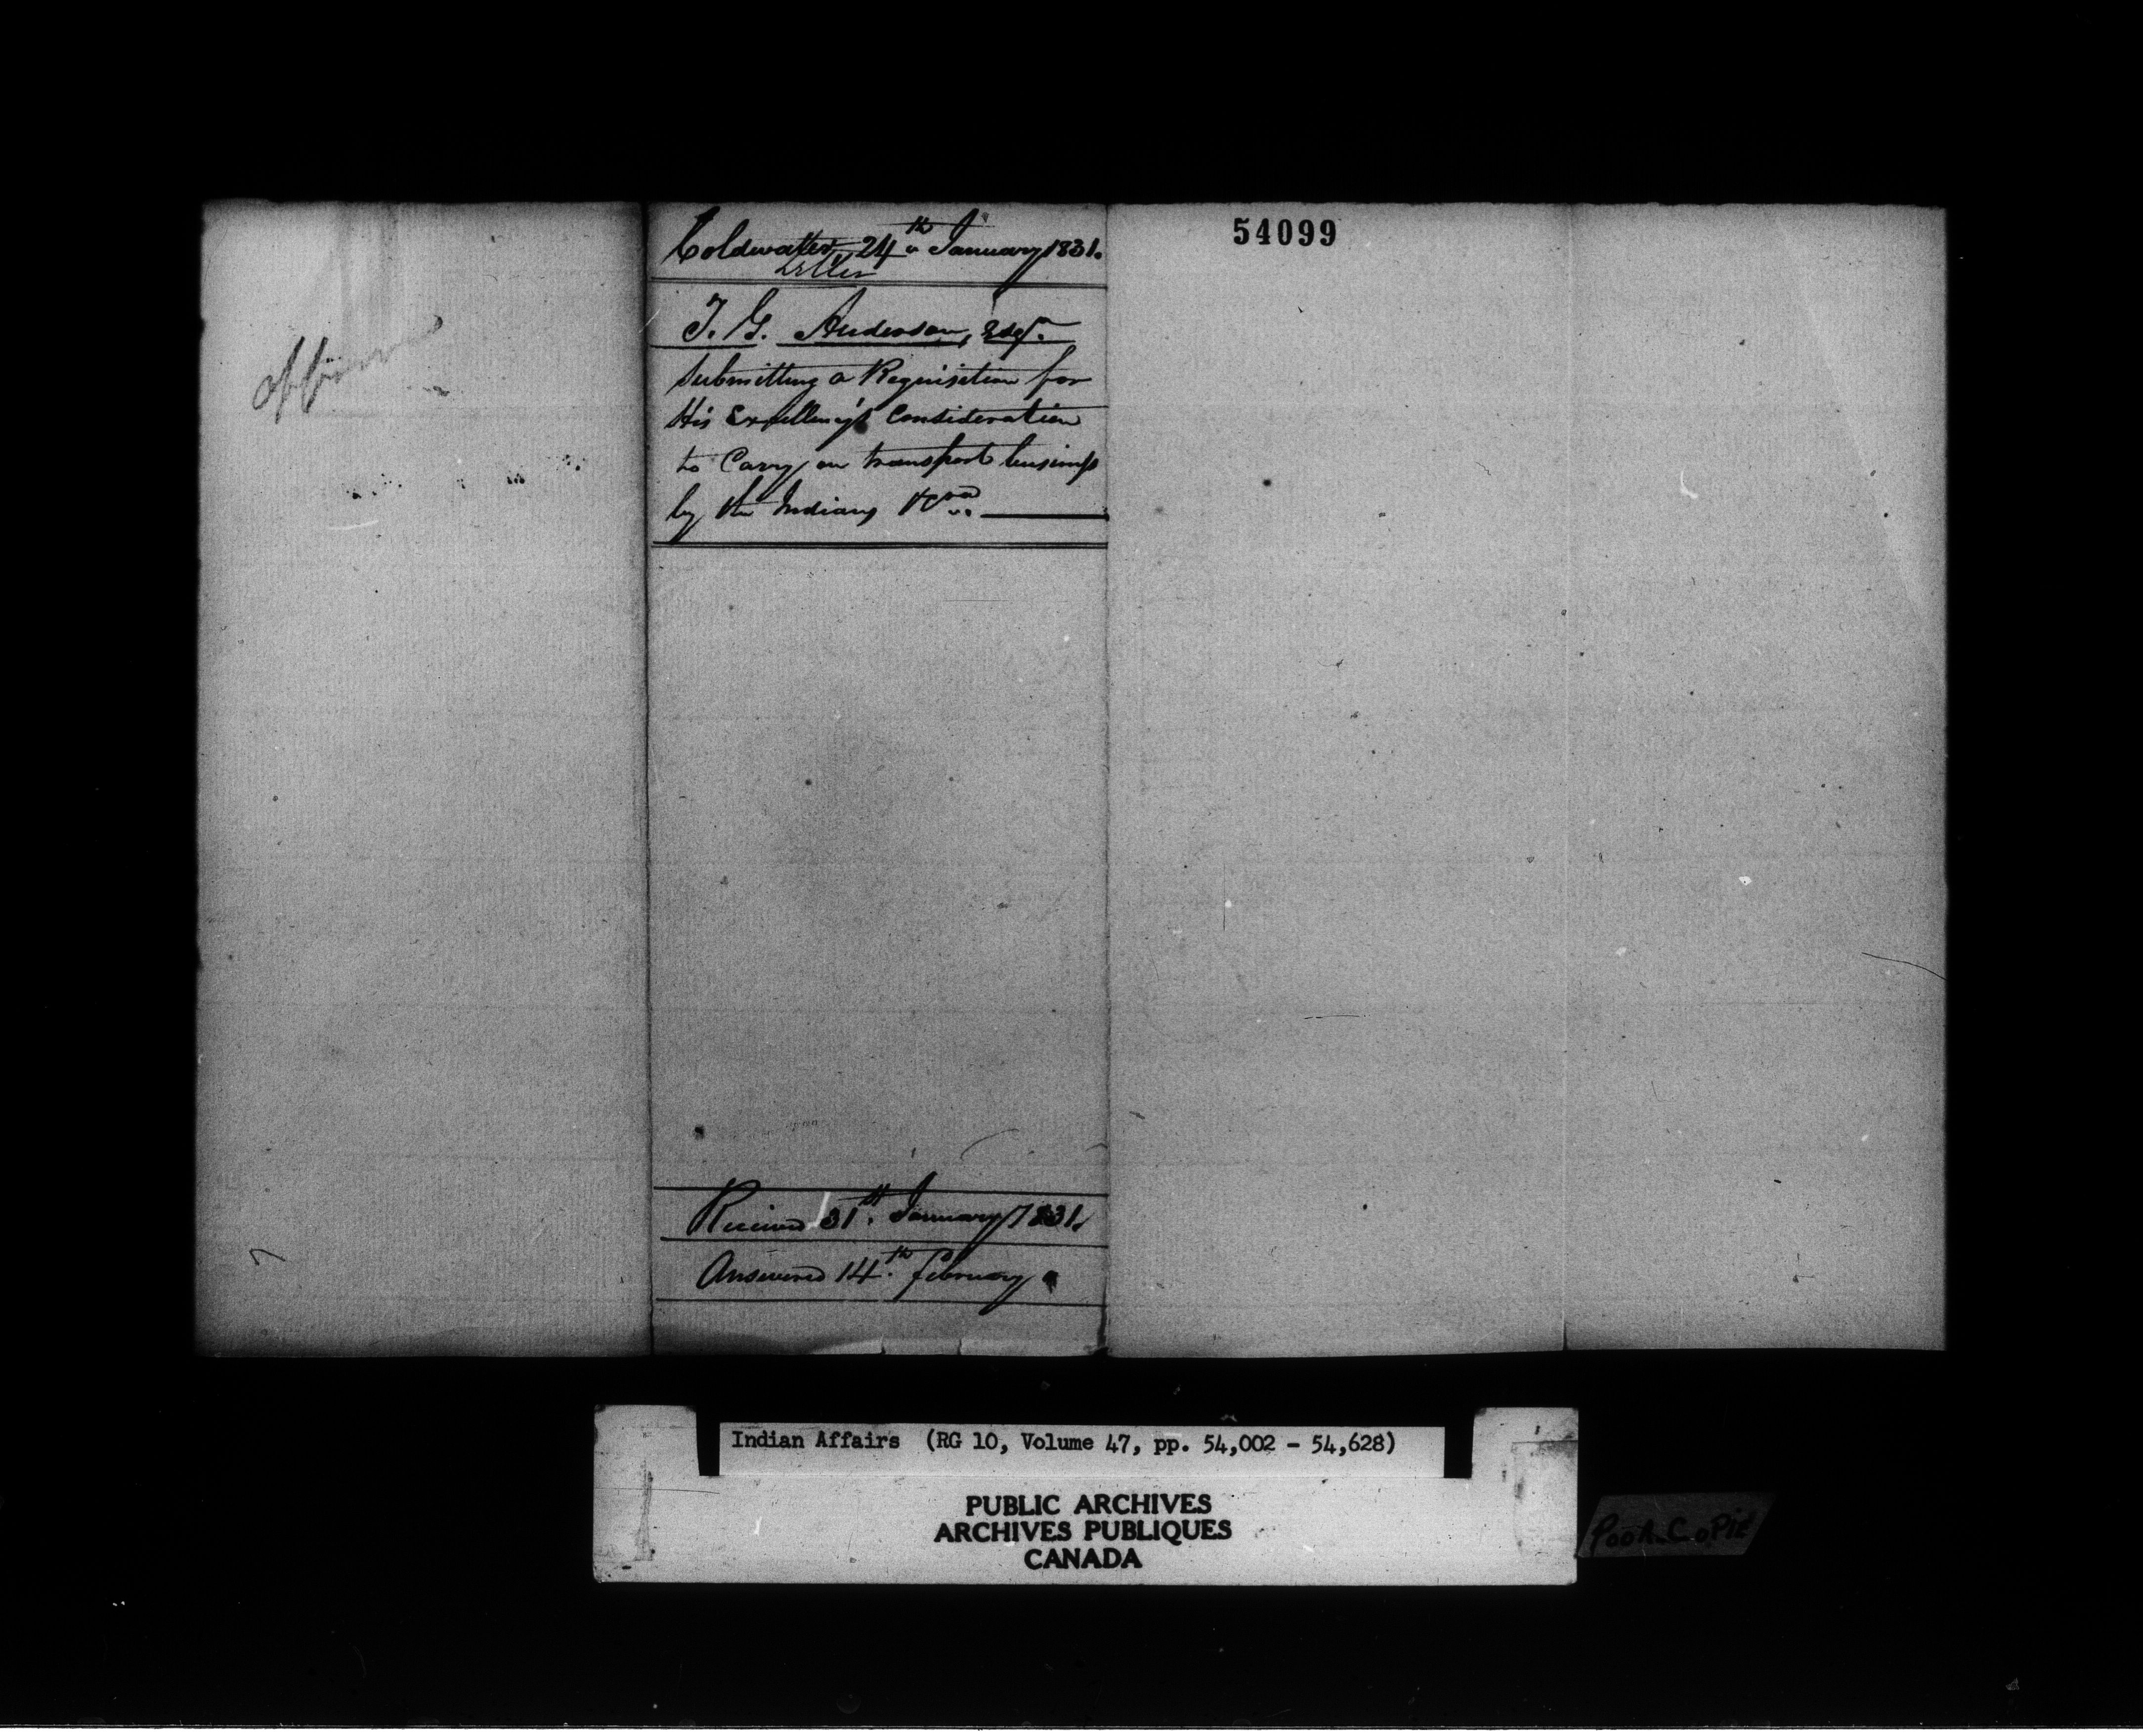 54099
Coldwater 24th January 1831.
Letter
T. G. Anderson, Esqr.
Submitting a Requisition for
His Excellency's Consideration
to Carry on transport business
by the Indians &ca
Received 31st January 1831.
Answered 14th february
Indian Affairs (RG 10, Volume 47, pp. 54,002 - 54,628)
PUBLIC ARCHIVES
ARCHIVES PUBLIQUES
CANADA
POOR COPIE